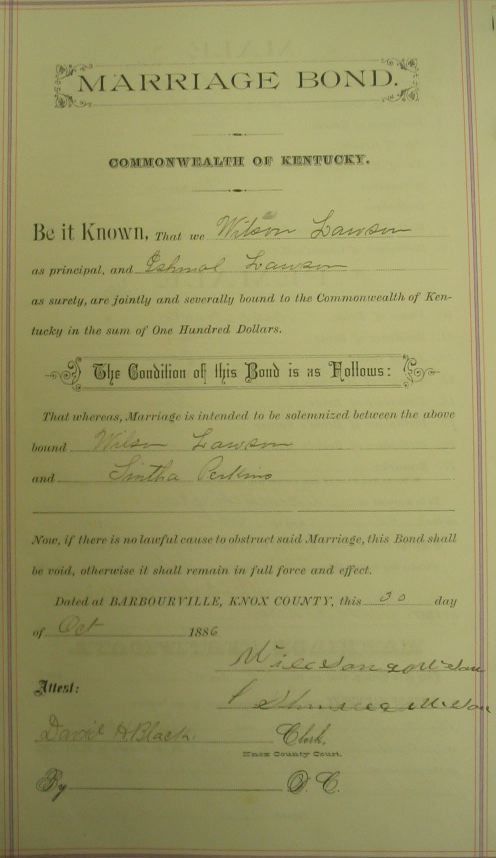 MARRIAGE BOND.
COMMONWEALTH OF KENTUCKY.
Be it Known, That we Wilson Lawson
as principal, and Eshmol Lawson
as surely, are jointly and severally bound to the Commonwealth of Ken-
tucky in the sum of One Hundred Dollars.
The Condition of this Bond is as Follows:
That whereas, Marriage is intended to be solemnized between the above
bound Wilson Lawson
and Sintha Perkins
Now, if there is no lawful cause to obstruct said Marriage, this Bond shall
be void, otherwise it shall remain in full force and effect.
Dated at BARBOURVILLE, KNOX COUNTY, this 30 day
of Oct 1886
Attest:
David H Black Clerk,
Knox County Court.
By D. C.